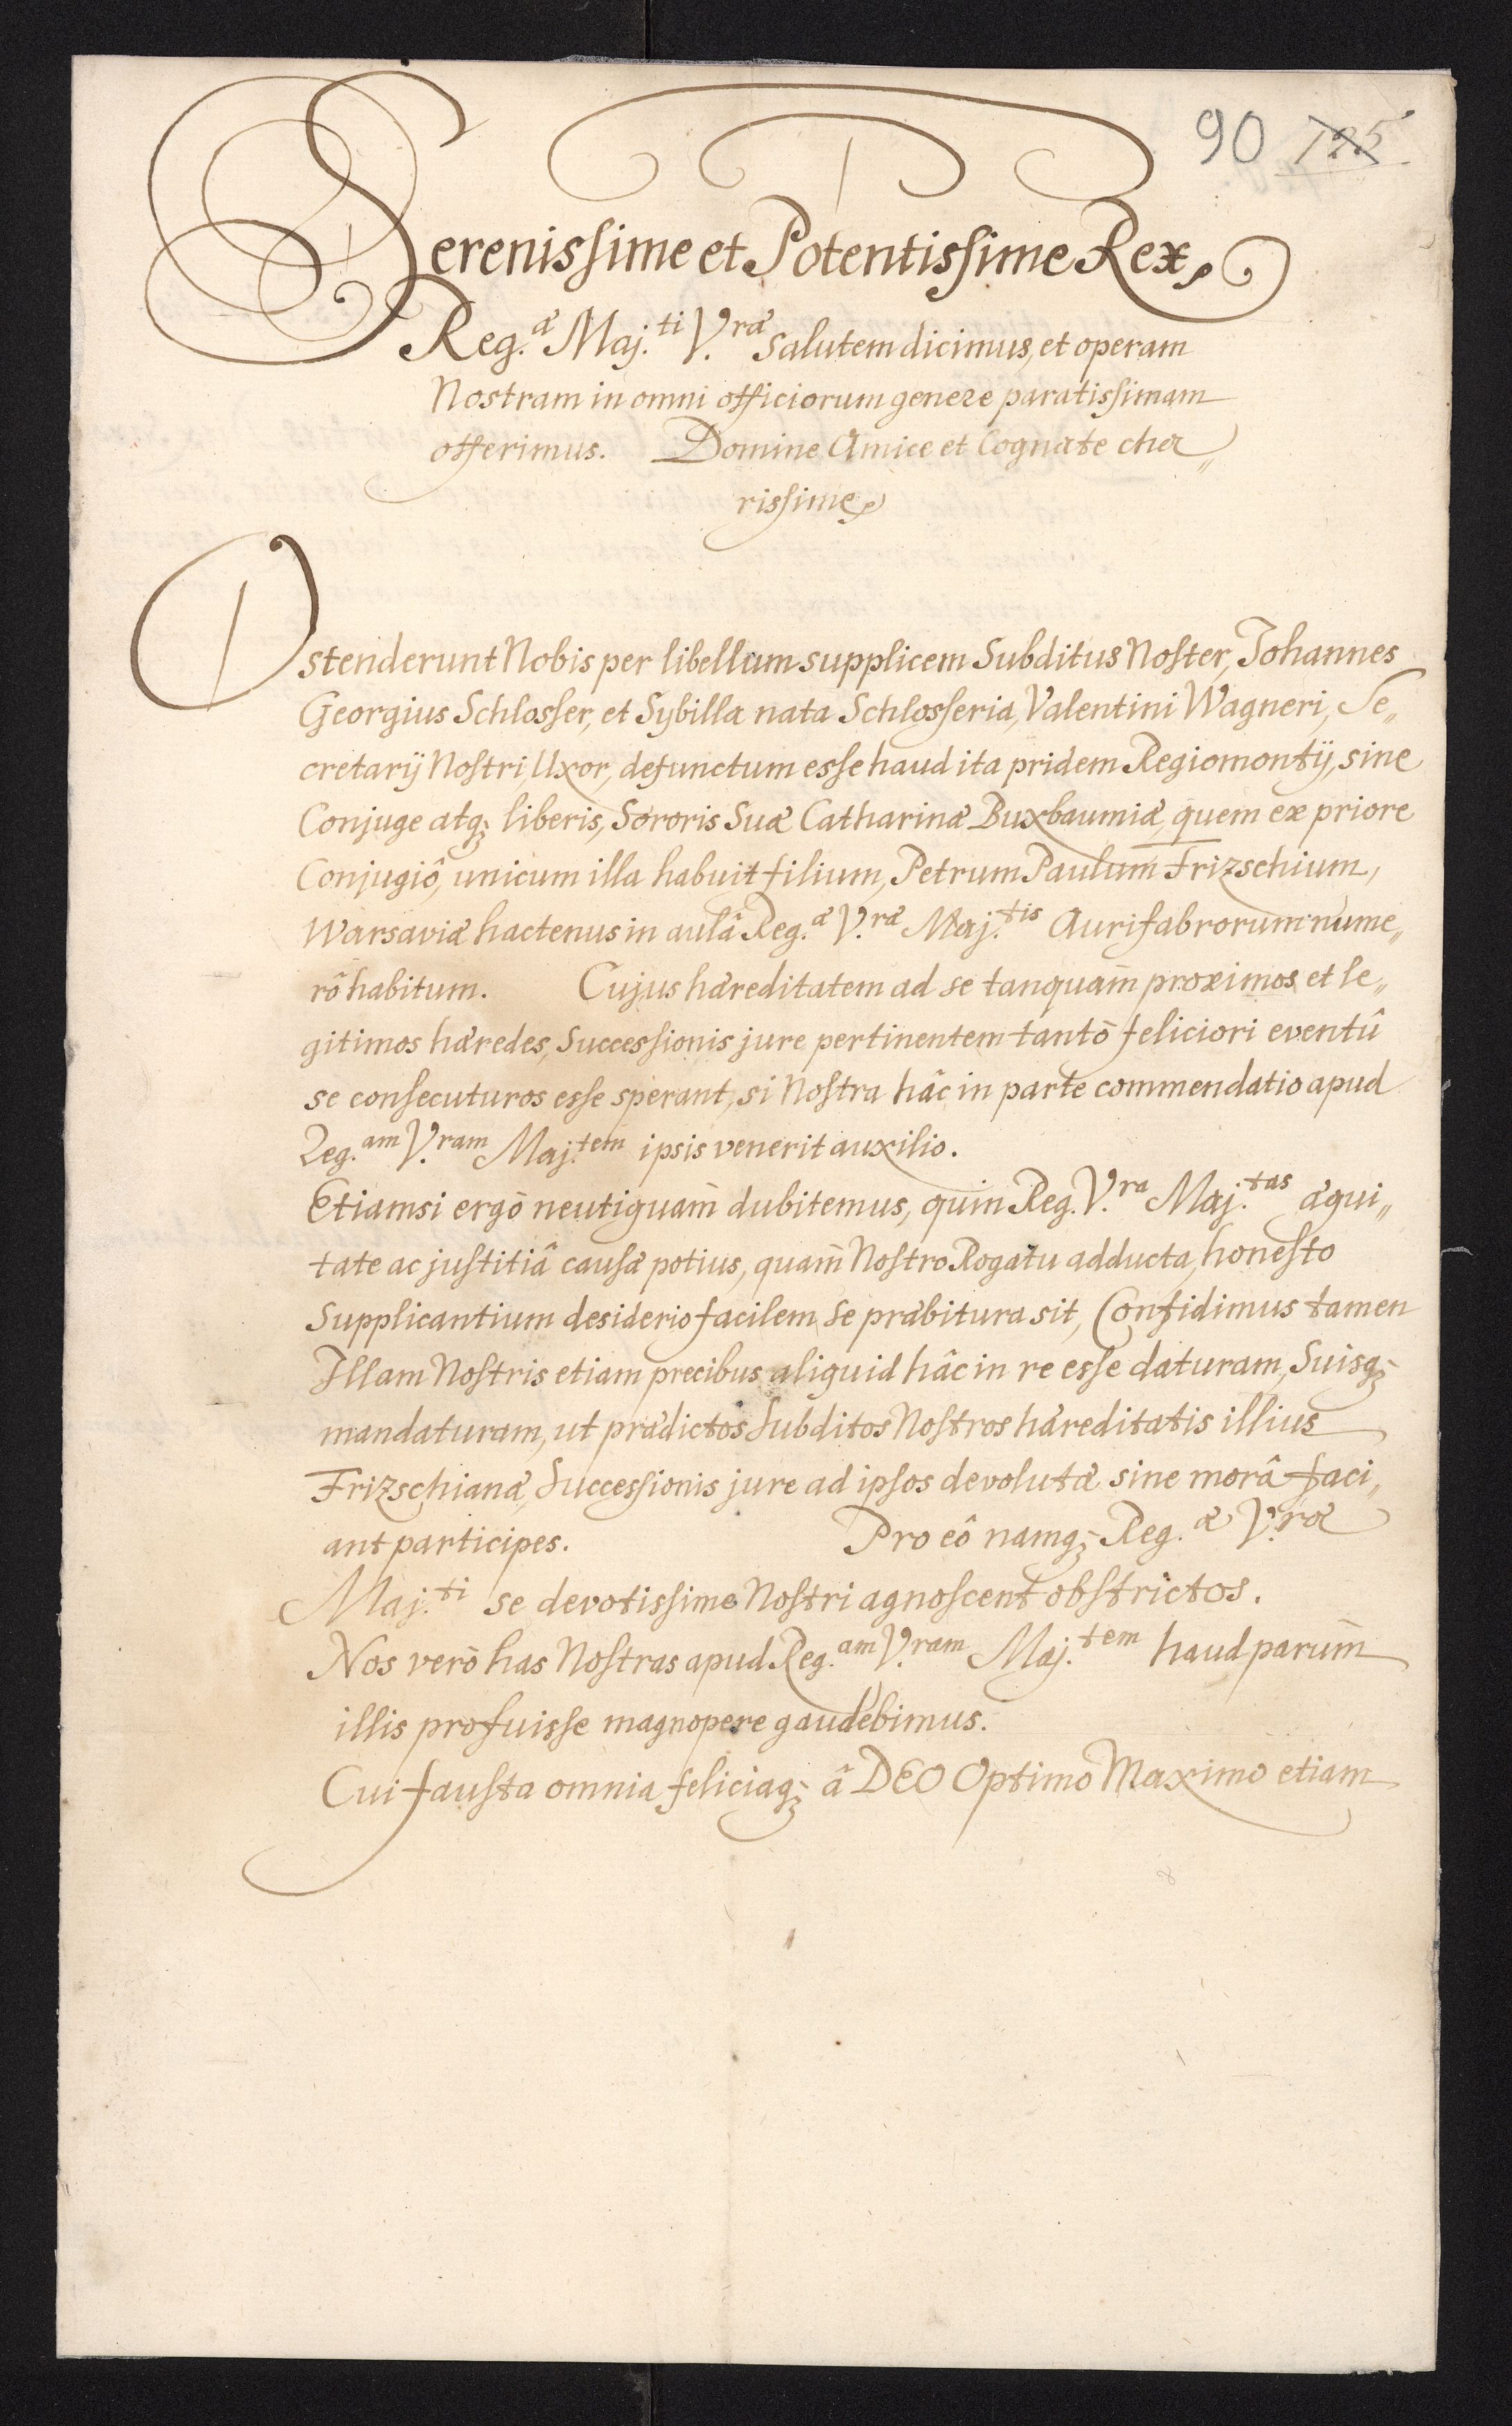 90 125
Serenissime et Potentissime Rex,
Reg.æ Maj.ti V.ræ salutem dicimus, et operam
Nostram in omni officiorum genere paratissimam
offerimus. Domine Amice et Cognate cha„
rissime,
Ostenderunt Nobis per libellum supplicem Subditus Noster, Johannes
Georgius Schlosser, et Sybilla nata Schlosseria, Valentini Wagneri, Se„
cretarij Nostri, Uxor, defunctum esse haud ita pridem Regiomontij, sine
Conjuge atq; liberis, Sororis Suæ Catharinæ Buxbaumiæ, quem ex priore
Conjugiô, unicum illa habuit filium, Petrum Paulum Frizschium,
Warsaviæ hactenus in aulâ Reg.æ V.ræ Maj.tis Aurifabrorum nume„
rô habitum. Cujus hæreditatem ad se tanquam̀ proximos et le„
gitimos hæredes, Successionis jure pertinentem tantò feliciori eventû
se consecuturos esse sperant, si Nostra hâc in parte commendatio apud
Reg.am V.ram Maj.tem ipsis venerit auxilio.
Etiamsi ergò neutiquam̀ dubitemus, quin Reg. V.ra Maj.tas æqui„
tate ac justitiâ causæ potius, quam̀ Nostro Rogatu adducta, honesto
Supplicantium desiderio facilem se præbitura sit, Confidimus tamen
Illam Nostris etiam precibus aliquid hâc in re esse daturam, Suisq;
mandaturam, ut prædictos Subditos Nostros hæreditatis illius
Frizschianæ, Successionis jure ad ipsos devolutæ sine morâ faci„
ant participes. Pro eô namq; Reg.æ V.ræ
Maj.ti se devotissime Nostri agnoscent obstrictos.
Nos verò has Nostras apud Reg.am V.ram Maj.tem haud parum̀
illis profuisse magnopere gaudebimus.
Cui fausta omnia feliciaq; â DEO Optimo Maximo etiam